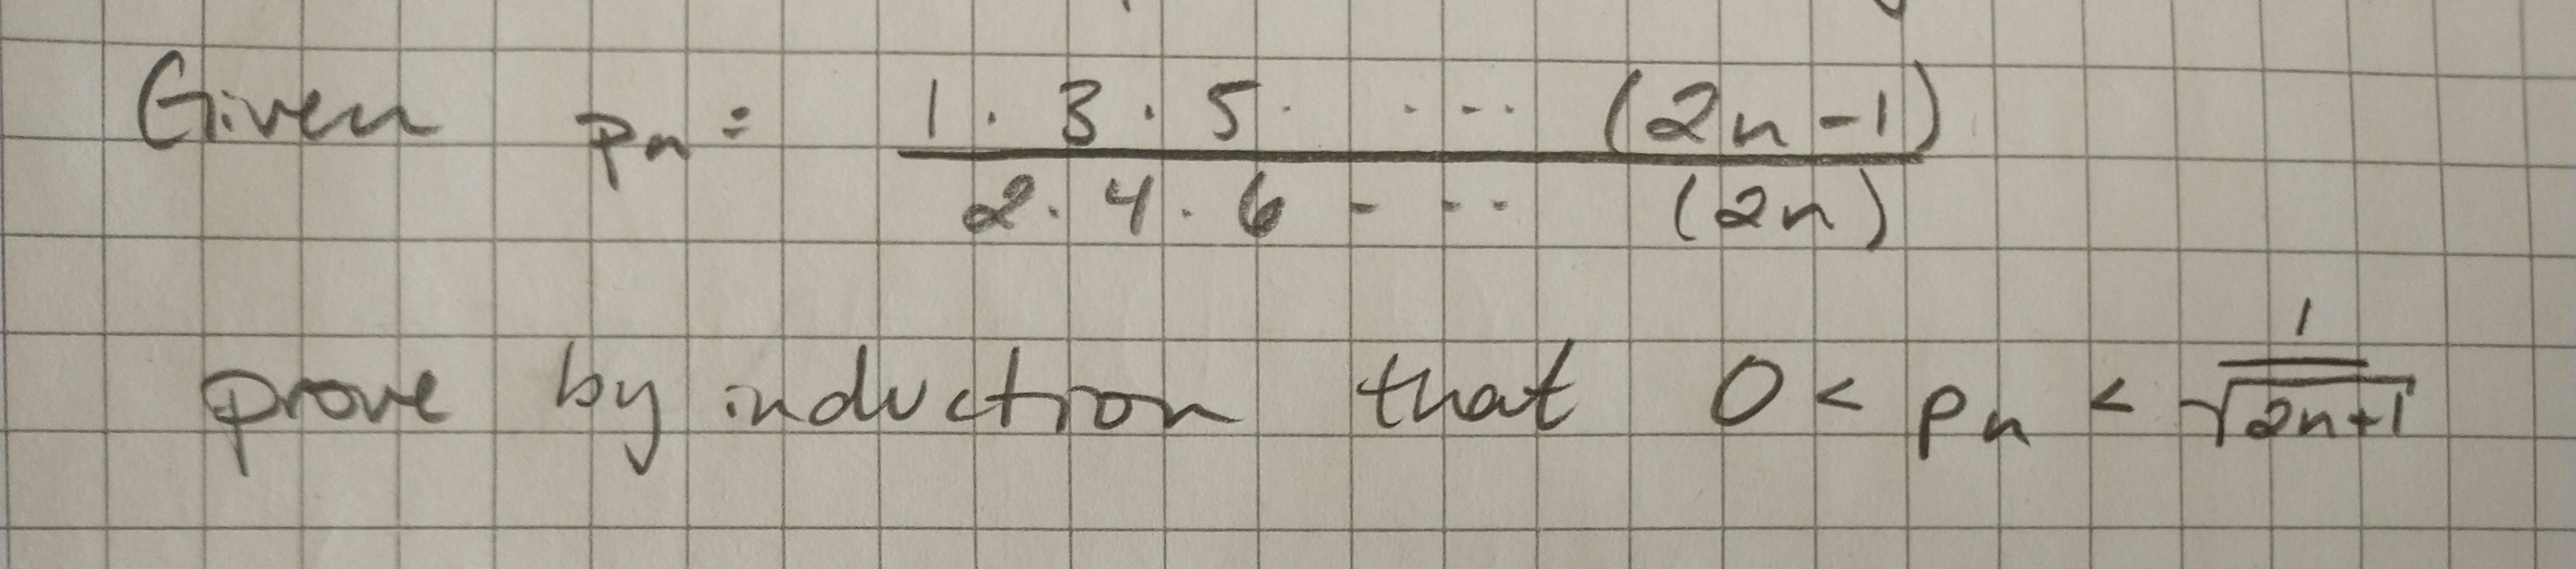 Given pₙ = 1 · 3 · 5 · ··· (2n-1) / 2 · 4 · 6 ··· (2n)
prove by induction that 0 < pₙ < 1/√(2n+1)